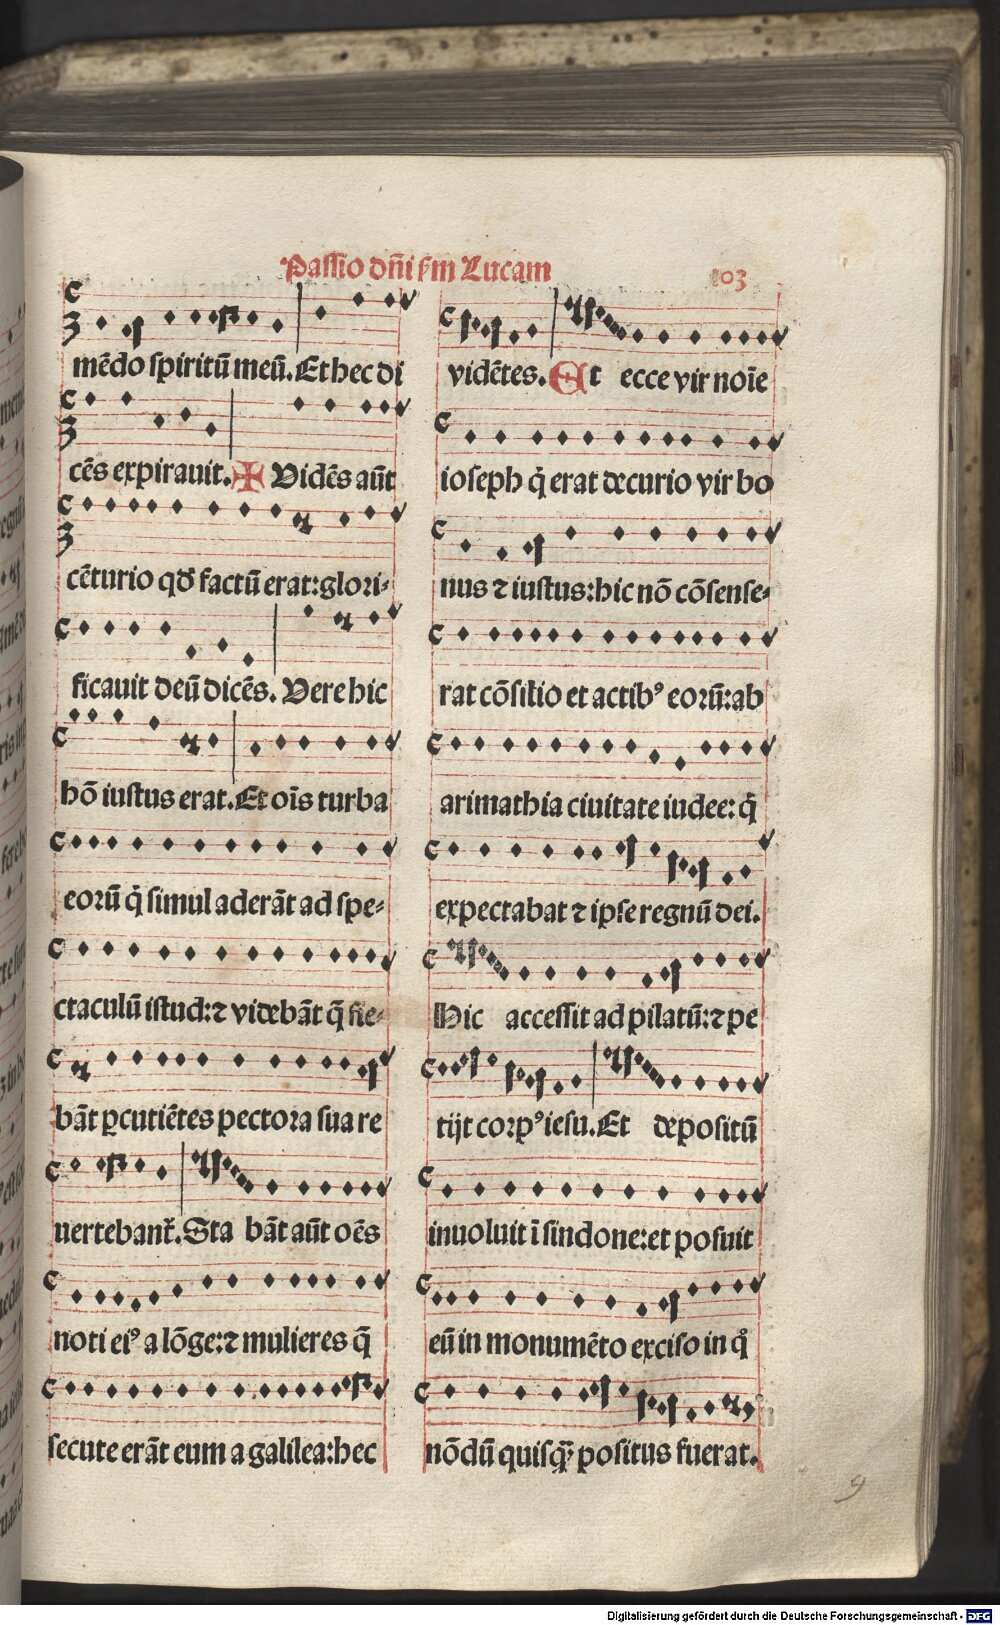 Passio dñi ẜm Lucam
103
mẽdo spiritũ meũ. Et hec di
cẽs expirauit. ✠ Uidẽs aũt
cẽturio qđ factũ erat: glori-
ficauit deũ dicẽs. Uere hic
hõ iustus erat. Et oĩs turba
eoꝛũ q̇ simul aderãt ad spe-
ctaculũ istud: ⁊ videbãt q̃ fie-
bãt ꝑcutiẽtes pectoꝛa sua re
uertebant᷑. Sta bãt aũt oẽs
noti eiꝰ a lõge: ⁊ mulieres q̃
secute erãt eum a galilea: hec
vidẽtes. Et ecce vir noĩe
ioseph q̇ erat decurio vir bo
nus ⁊ iustus: hic nõ cõsense-
rat cõsilio et actibꝰ eoꝛũ: ab
arimathia ciuitate iudee: q̇
expectabat ⁊ ipse regnũ dei.
Hic accessit ad pilatũ: ⁊ pe
tijt coꝛpꝰ iesu. Et depositũ
inuoluit ĩ sindone: et posuit
eũ in monumẽto exciso in q̊
nõdũ quisq̃ꝫ positus fuerat.
9
Digitalisierung gefördert durch die Deutsche Forschungsgemeinschaft - DFG